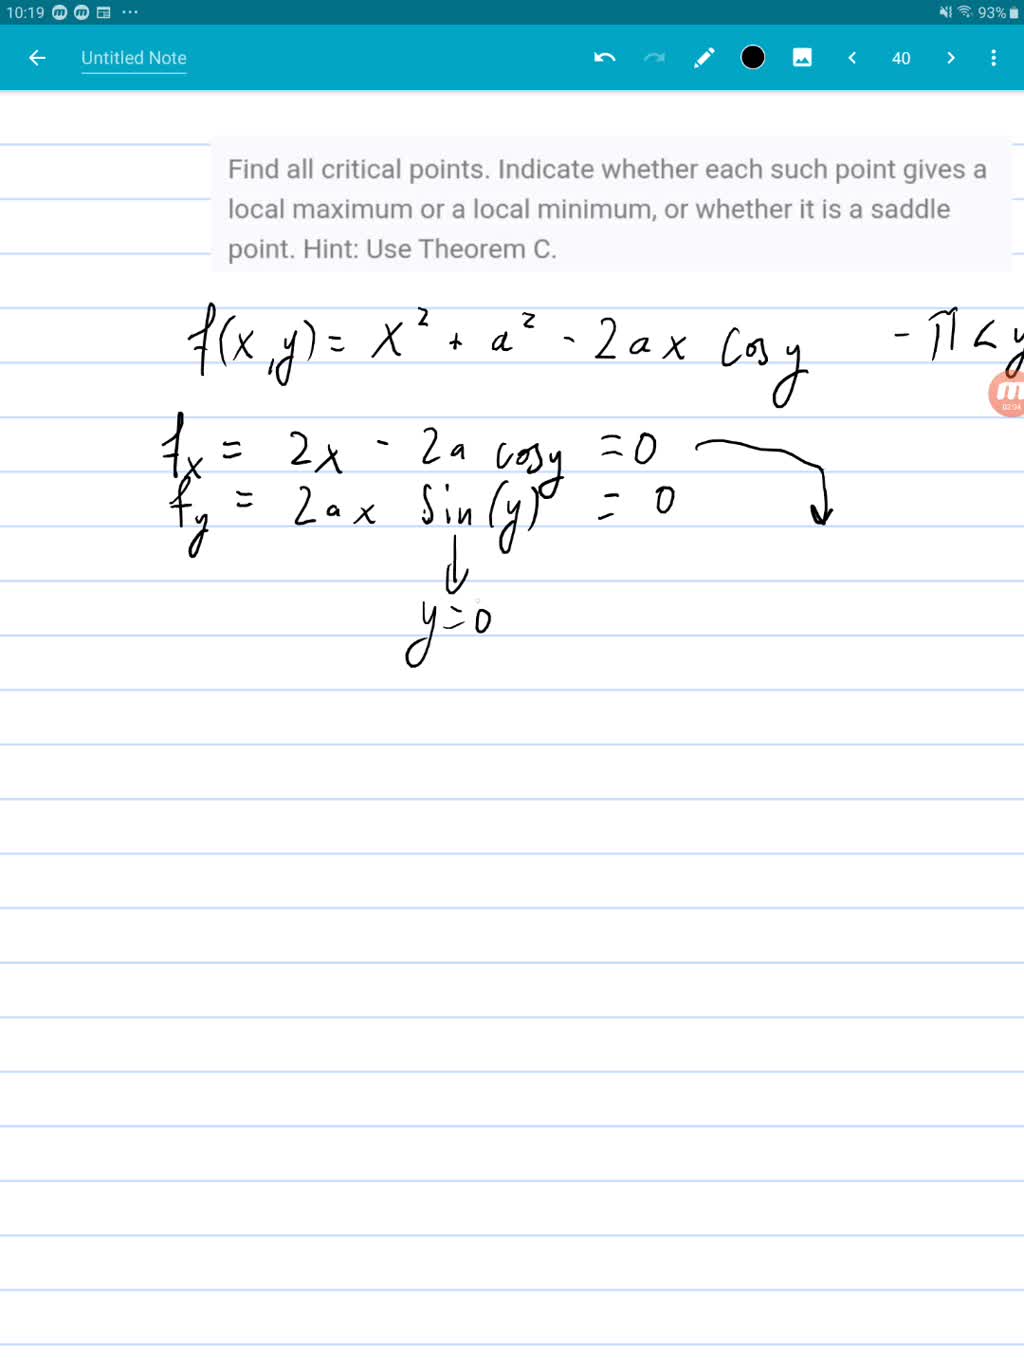 10:19 93%
Untitled Note 40
Find all critical points. Indicate whether each such point gives a
local maximum or a local minimum, or whether it is a saddle
point. Hint: Use Theorem C.
f(x,y) = x² + a² - 2ax cos y -π < y
02:94
f_x = 2x - 2a cos y = 0
f_y = 2ax sin(y) = 0
y = 0